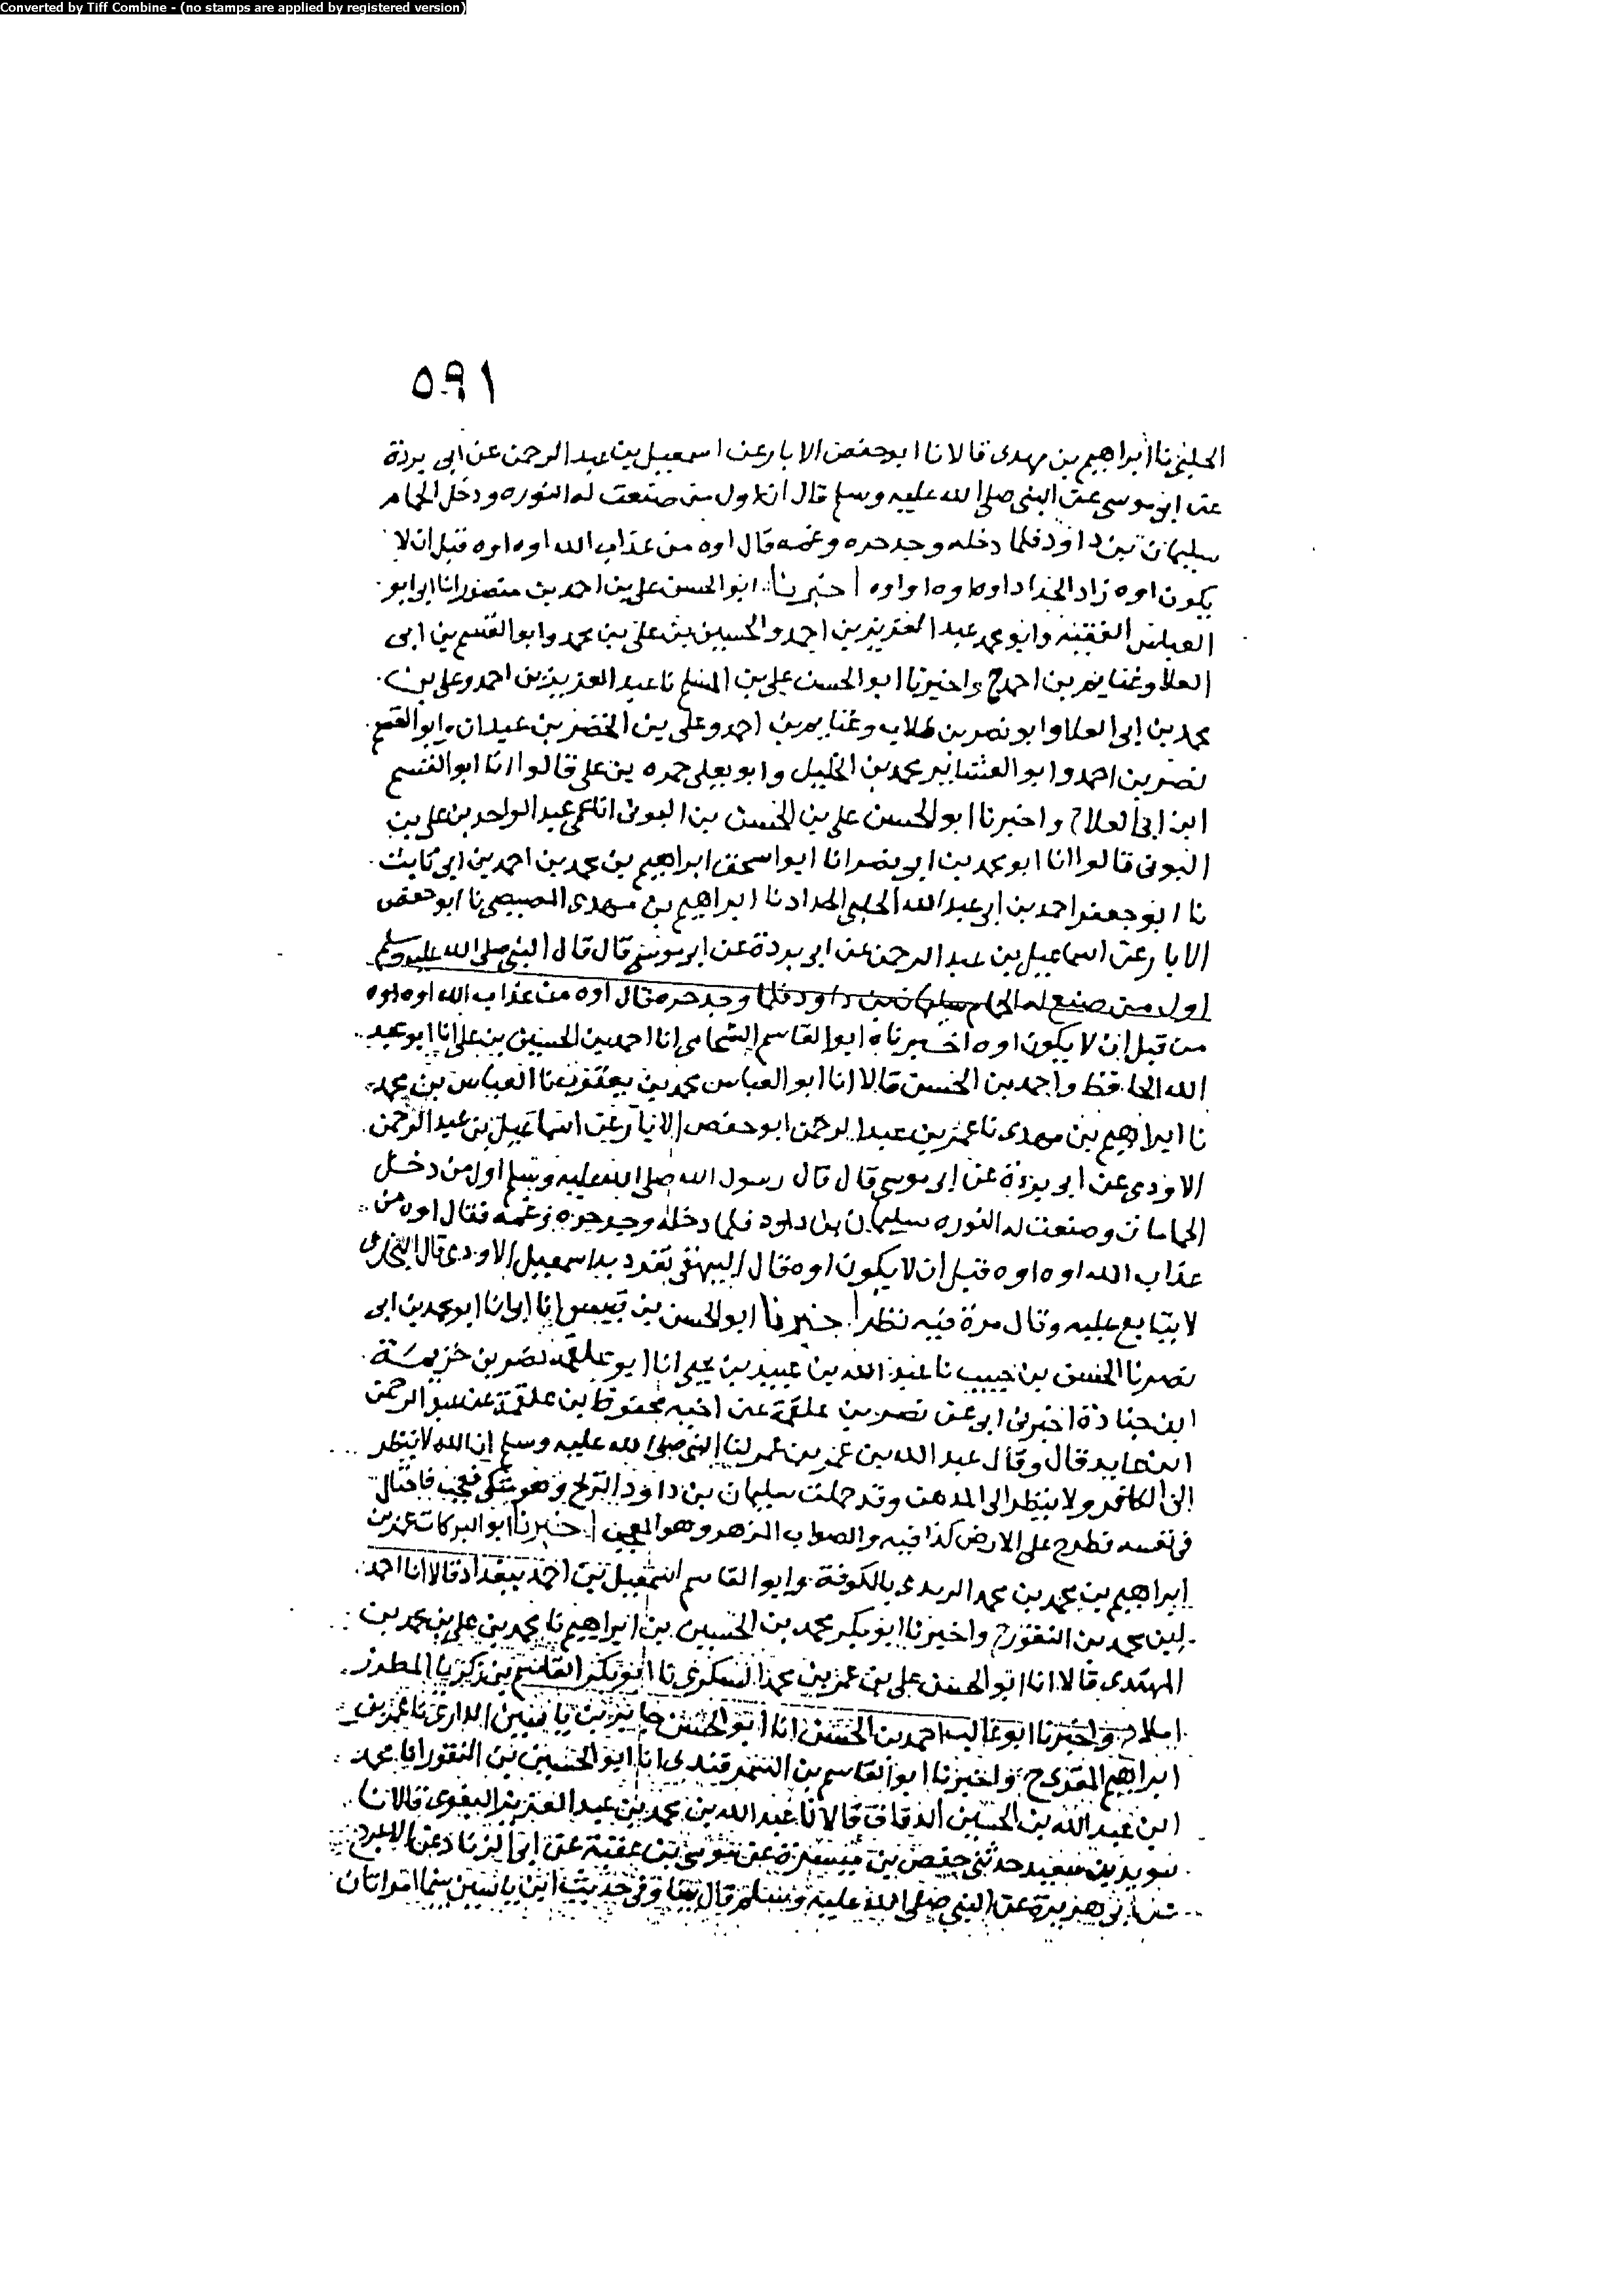 Converted by Tiff Combine - (no stamps are applied by registered version)
٥٩١
الحلبي نا ابراهيم بن مهدى قالا نا ابو حفص الابار عن اسمعيل بن عبد الرحمن عن ابى بردة
عن ابى موسى عن النبى صلى الله عليه وسلم قال ان اول من صنعت له النوره ودخل الحمام
سليمان بن داود فلما دخله وجد حره وغمه قال اوه من عذاب الله اوه اوه قبل ان لا
يكون اوه زاد الحداد اوه اوه اواوه اخبرنا ابو الحسن على بن احمد بن منصور انا ابى ابو
العباس الفقيه وابو محمد عبد العزيز بن احمد والحسين بن على بن محمد وابو القسم بن ابى
العلا وغنايم بن احمد ح واخبرنا ابو الحسن على بن المسلم نا عبد العزيز بن احمد وعلى بن
محمد بن ابى العلا وابو نصر بن طلاب وغنايم بن احمد وعلى بن الخضر بن عبدان وابو القسم
نصر بن احمد وابو العشاير محمد بن الخليل وابو يعلى حمزه بن على قالوا انا ابو القسم
ابن ابى العلا ح واخبرنا ابو الحسن على بن الحسن بن البونى انا عمى عبد الواحد بن على بن
البونى قالوا انا ابو محمد بن ابى نصر انا ابو اسحق ابراهيم بن محمد بن احمد بن ابى ثابت
نا ابو جعفر احمد بن ابى عبد الله الحلبى الحداد نا ابراهيم بن مهدى المصيصى نا ابو حفص
الابار عن اسماعيل بن عبد الرحمن عن ابى بردة عن ابى موسى قال قال النبى صلى الله عليه وسلم
اول من صنع له الحمام سليمان بن داود فلما وجد حره قال اوه من عذاب الله اوه اوه
من قبل ان لا يكون اوه اخبرناه ابو القاسم الشحامى انا احمد بن الحسين بن على انا ابو عبد
الله الحافظ واحمد بن الحسن قالا انا ابو العباس محمد بن يعقوب نا العباس بن محمد
نا ابراهيم بن مهدى نا عمر بن عبد الرحمن ابو حفص الابار عن اسماعيل بن عبد الرحمن
الاودى عن ابى بردة عن ابى موسى قال قال رسول الله صلى الله عليه وسلم اول من دخل
الحمامات وصنعت له النوره سليمان بن داود فلما دخله وجد حره وغمه فقال اوه من
عذاب الله اوه اوه قبل ان لا يكون اوه قال البيهقى تفرد به اسمعيل الاودى قال البخارى
لا يتابع عليه وقال مرة فيه نظر اخبرنا ابو الحسن بن قبيس انا ابى انا ابو محمد بن ابى
نصر نا الحسن بن حبيب نا عبد الله بن عبيد بن يحيى انا ابو علقمه نصر بن خزيمة
ابن جنادة اخبرنى ابى عن نصر بن علقمة عن اخيه محفوظ بن علقمة عن عبد الرحمن
ابن عايد قال وقال عبد الله بن عمر بن عمر لنا النبى صلى الله عليه وسلم ان الله لا ينظر
الى الكافر ولا ينظر الى المدهن وقد حملت سليمان بن داود الريح وهو متكى فعجب فاختال
فى نفسه فطرح على الارض كذا فيه والصواب المزهر وهو المعجب اخبرنا ابو البركات عمر بن
ابراهيم بن محمد بن محمد الزيدى بالكوفة وابو القاسم اسمعيل بن احمد ببغداد قالا انا احمد
بن محمد بن النقور ح واخبرنا ابو بكر محمد بن الحسين بن ابراهيم نا محمد بن على بن محمد بن
المهتدى قالا انا ابو الحسن على بن عمر بن محمد السكرى نا ابو بكر القاسم بن زكريا المطرز
املاء ح واخبرنا ابو غالب احمد بن الحسن انا ابو الحسن جابر بن ياسين الدارى نا عمر بن
ابراهيم المقرى ح واخبرنا ابو القاسم بن السمرقندى انا ابو الحسين بن النقور انا محمد
ابن عبد الله بن الحسين الدقاق قالا نا عبد الله بن محمد بن عبد العزيز البغوى قالا نا
سويد بن سعيد حدثنى حفص بن ميسرة عن موسى بن عقبة عن ابى الزناد عن الاعرج
عن ابى هريرة عن النبى صلى الله عليه وسلم قال بينا وفى حديث ابن ياسين بينما امراتان